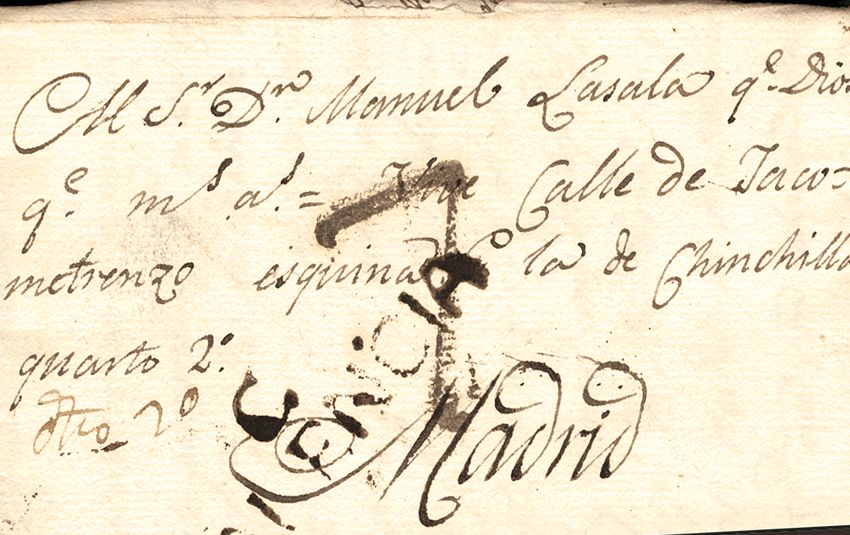 Al S.r D.n Manuel Lasala q.e Dios
q.e m.s a.s = Vive Calle de Jaco=
metrenzo esquina a la de Chinchilla
quarto 2.o
2o
Madrid
7